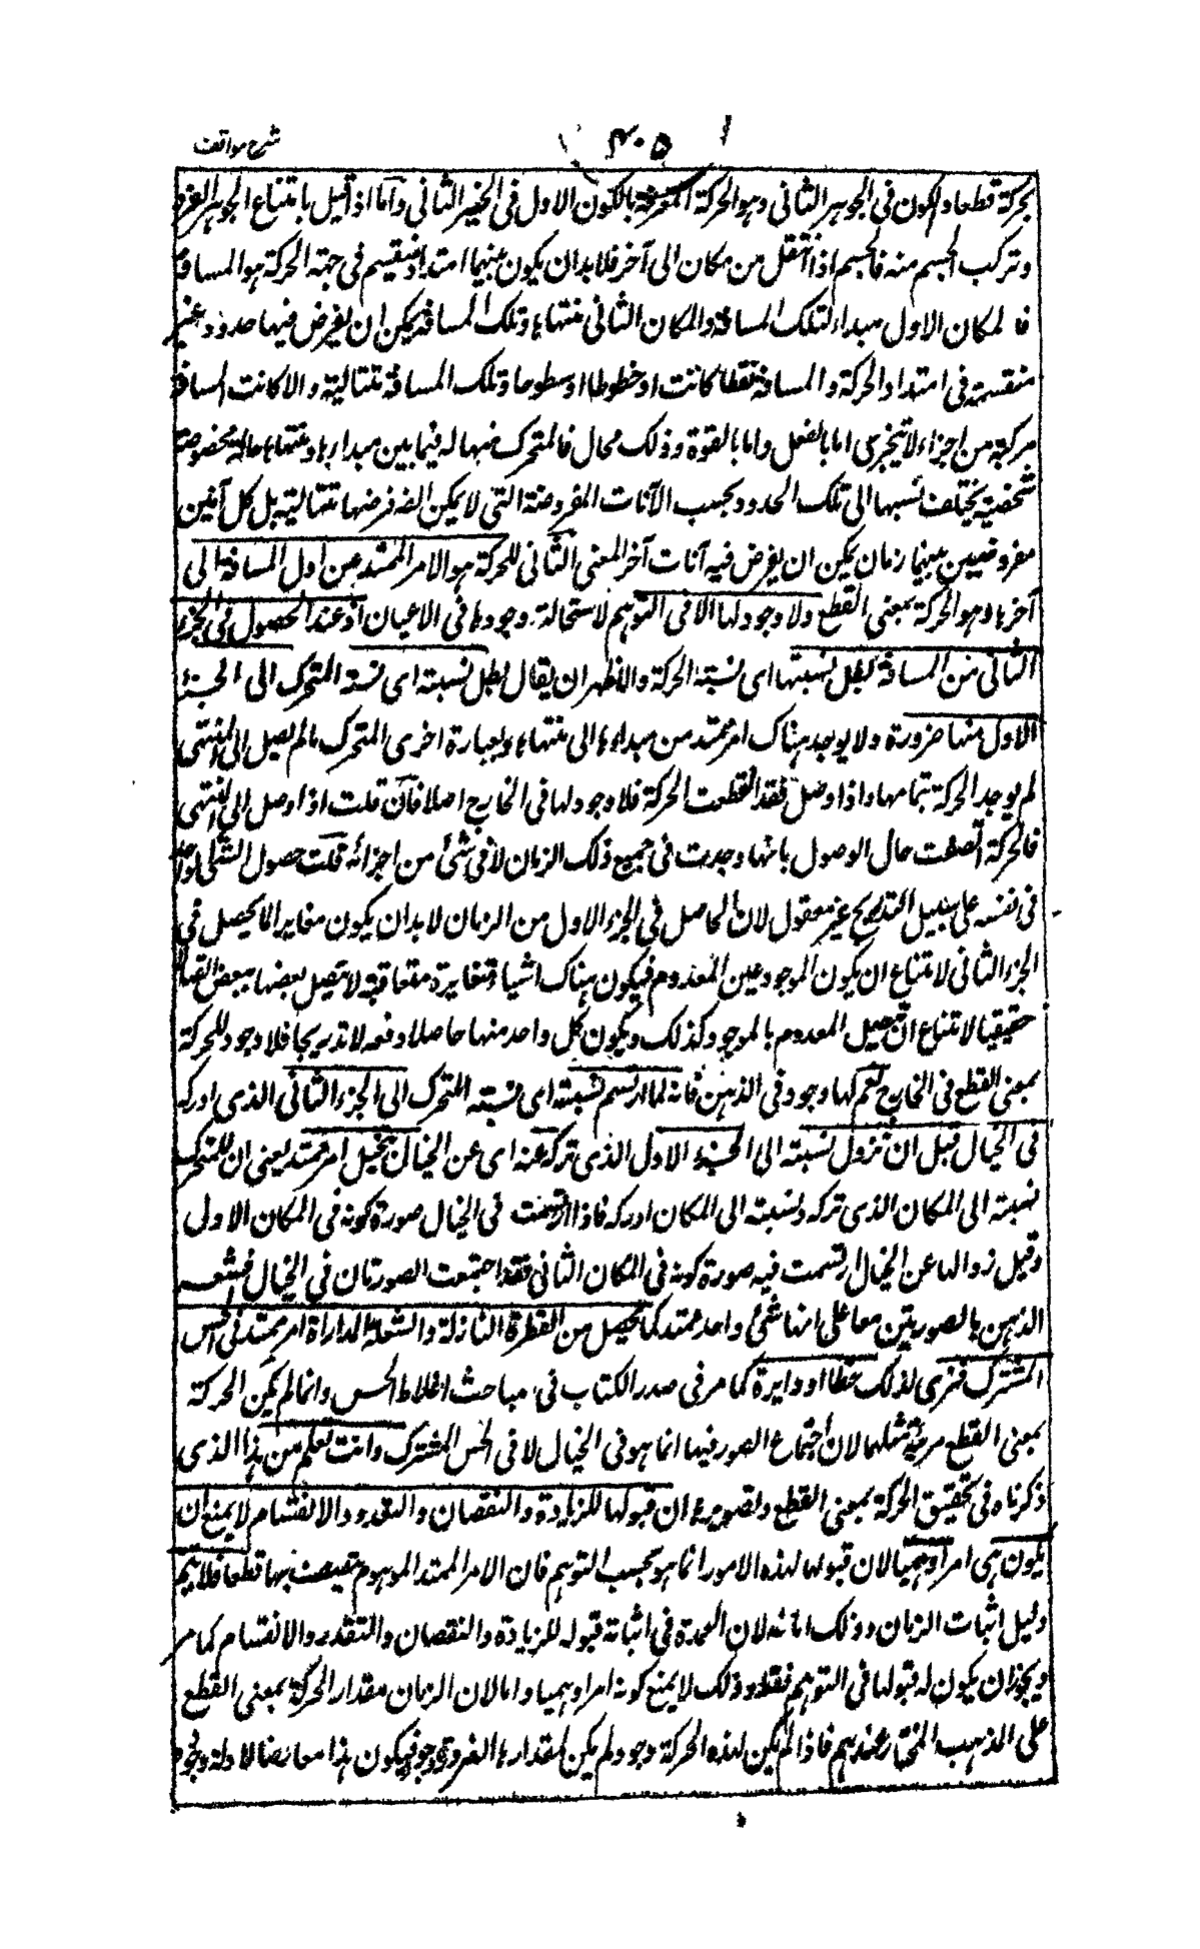 شرح مواقف
٤٠٥
بحركة قطعا والكون فى الجوهر الثانى وهو الحركة المعرفة بالكون الاول فى الحيز الثانى واما اذا قيل بامتناع الجوهر الفرد
وتركب الجسم منه فالجسم اذا انتقل من مكان الى آخر فلا بد ان يكون بينهما امتداد منقسم فى جهة الحركة هو المسافة
فالمكان الاول مبداء لتلك المسافة والمكان الثانى منتهاها وتلك المسافة يمكن ان يفرض فيها حدود غير
منقسمة فى امتداد الحركة والمسافة نقطا كانت او خطوطا او سطوحا وتلك المسافة متتالية والا كانت المسافة
مركبة من اجزاء لا تتجزى اما بالفعل واما بالقوة وذلك محال فالمتحرك منها له فيما بين مبدارها ومنتهاها حالة مخصوصة
شخصية يختلف نسبها الى تلك الحدود بحسب الآنات المفروضة التى لا يمكن ايضا فرضها متتالية بل كل آنين
مفروضين بينهما زمان يمكن ان يفرض فيه آنات آخر المعنى الثانى للحركة هو الامر الممتد من اول المسافة الى
آخرها وهو الحركة بمعنى القطع ولا وجود لها الا فى التوهم لاستحالة وجودها فى الاعيان اذ عند الحصول فى الجزء
الثانى من المسافة بطل نسبتها اى نسبة الحركة والاظهر ان يقال بطل نسبته اى نسبة المتحرك الى الجزء
الاول منها ضرورة ولا يوجد هناك امر ممتد من مبداءها الى منتهاها وبعبارة اخرى المتحرك ما لم يصل الى المنتهى
لم يوجد الحركة بتمامها واذا وصل فقد انقطعت الحركة فلا وجود لها فى الخارج اصلا فان قلت اذا وصل الى المنتهى
فالحركة اتصفت حال الوصول بانها وجدت فى جميع ذلك الزمان لا فى شئ من اجزائه قلت حصول الشئ الواحد
فى نفسه على سبيل التدريج غير معقول لان الحاصل فى الجزء الاول من الزمان لا بد ان يكون مغايرا لما يحصل فى
الجزء الثانى لامتناع ان يكون الموجود عين المعدوم فيكون هناك اشياء متغايرة متعاقبة لا يتصل بعضها ببعض اتصالا
حقيقيا لامتناع ان يتصل المعدوم بالموجود كذلك ويكون كل واحد منها حاصلا دفعة لا تدريجا فلا وجود للحركة
بمعنى القطع فى الخارج نعم لها وجود فى الذهن فانه لما ارتسم نسبته اى نسبة المتحرك الى الجزء الثانى الذى ادركه
فى الخيال قبل ان تزول نسبته الى الجزء الاول الذى تركه عنه اى عن الخيال يتخيل امر ممتد يعنى ان للمتحرك
نسبة الى المكان الذى تركه ونسبة الى المكان ادركه فاذا ارتسمت فى الخيال صورة كونه فى المكان الاول
وقبل زوالها عن الخيال ارتسمت فيه صورة كونه فى المكان الثانى فقد اجتمعت الصورتان فى الخيال فيشعر
الذهن بالصورتين معا على انها شئ واحد ممتد كما يحصل من القطرة النازلة والشعلة المدارة امر ممتد فى الحس
المشترك فنرى لذلك خطا او دايرة كما مر فى صدر الكتاب فى مباحث اغلاط الحس وانما لم يكن الحركة
بمعنى القطع مرئية مثلهما لان اجتماع الصور فيها انما هو فى الخيال لا فى الحس المشترك وانت تعلم من هذا الذى
ذكرناه فى تحقيق الحركة بمعنى القطع وتصويرها ان قبولها للزيادة والنقصان والتقدر والانقسام لا يمنع ان
يكون هى امرا وهميا لان قبولها لهذه الامور انما هو بحسب التوهم فان الامر الممتد الموهوم يتصف بها قطعا فلا يتم
دليل اثبات الزمان وذلك اما لان العمدة فى اثباته قبوله للزيادة والنقصان والتقدر والانقسام كما مر
ويجوز ان يكون له قبولها فى التوهم فقط وذلك لا يمنع كونه امرا وهميا واما لان الزمان مقدار الحركة بمعنى القطع
على المذهب المختار عندهم فاذا لم يكن لهذه الحركة وجود لم يكن لمقدارها الضرورة وجود فيكون هذا معارضا لادلة وجود